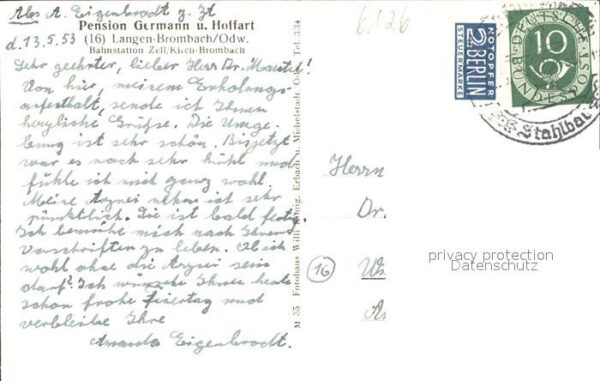 Abs A. Eigenbrodt z. Zt
Pension Germann u. Hoffart
(16) Langen-Brombach/Odw.
Bahnstation Zell Kirch-Brombach
d. 13.5.53
Sehr geehrter, lieber Herr Dr.
Von hier, meinem Erholungs-
aufenthalt, sende ich Ihnen
herzliche Grüsse. Die Umge-
bung ist sehr schön. Bis jetzt
war es noch sehr kühl und
fühle ich mich ganz wohl.
Meine Arznei nehme ich sehr
pünktlich. Sie ist bald fertig.
Ich bemühe mich nach Ihren
Vorschriften zu leben. Ob ich
wohl ohne die Arznei sein
darf? Ich wünsche Ihnen heute
schon frohe Feiertag und
verbleibe Ihre
Amanda Eigenbrodt.
M 35 Fotohaus Willi König, Erbach u. Michelstadt Odw. Tel. 334
6126
NOTOPFER
2 BERLIN
STEUERMARKE
DEUTSCHE
BUNDESPOST
10
Stahlbau
Herrn
Dr.
16
privacy protection
Datenschutz